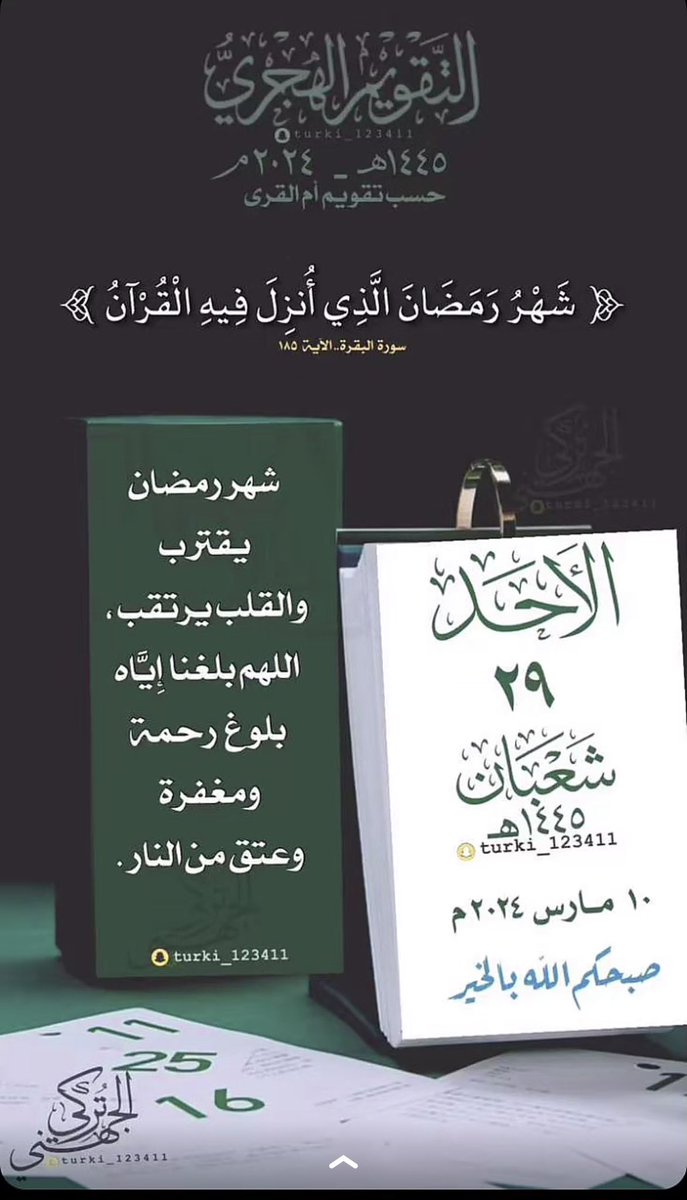 التَّقويم الهُجريُّ
turki_123411
١٤٤٥هـ _ ٢٠٢٤م
حسب تقويم أم القرى
﴿ شَهْرُ رَمَضَانَ الَّذِي أُنزِلَ فِيهِ الْقُرْآنُ ﴾
سورة البقرة..الآية ١٨٥
تركي الجهني
turki_123411
شهر رمضان
يقترب
والقلب يرتقب،
اللهم بلغنا إيَّاه
بلوغ رحمة
ومغفرة
وعتق من النار.
turki_123411
الأَحَد
٢٩
شَعْبَان
١٤٤٥هـ
turki_123411
١٠ مارس ٢٠٢٤م
صبحكم الله بالخير
11
25
16
تُركي الجهني
turki_123411